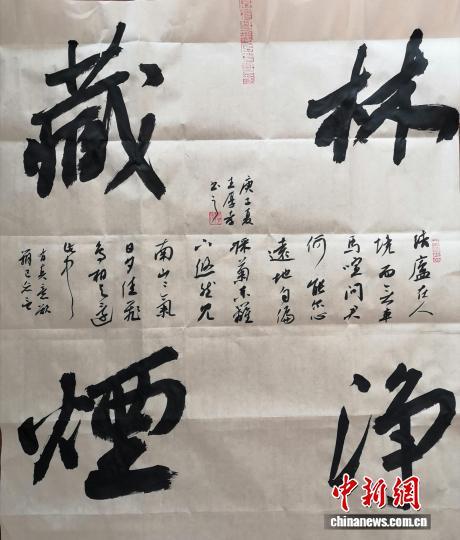 林
净
藏
煙
结廬在人
境而无車
馬喧问君
何能尔心
遠地自偏
採菊东籬
下悠然见
南山々氣
日夕佳飛
鸟相与還
此中
有真意欲
辯已忘言
庚子夏
王厚
书
中新網
chinanews.com.cn